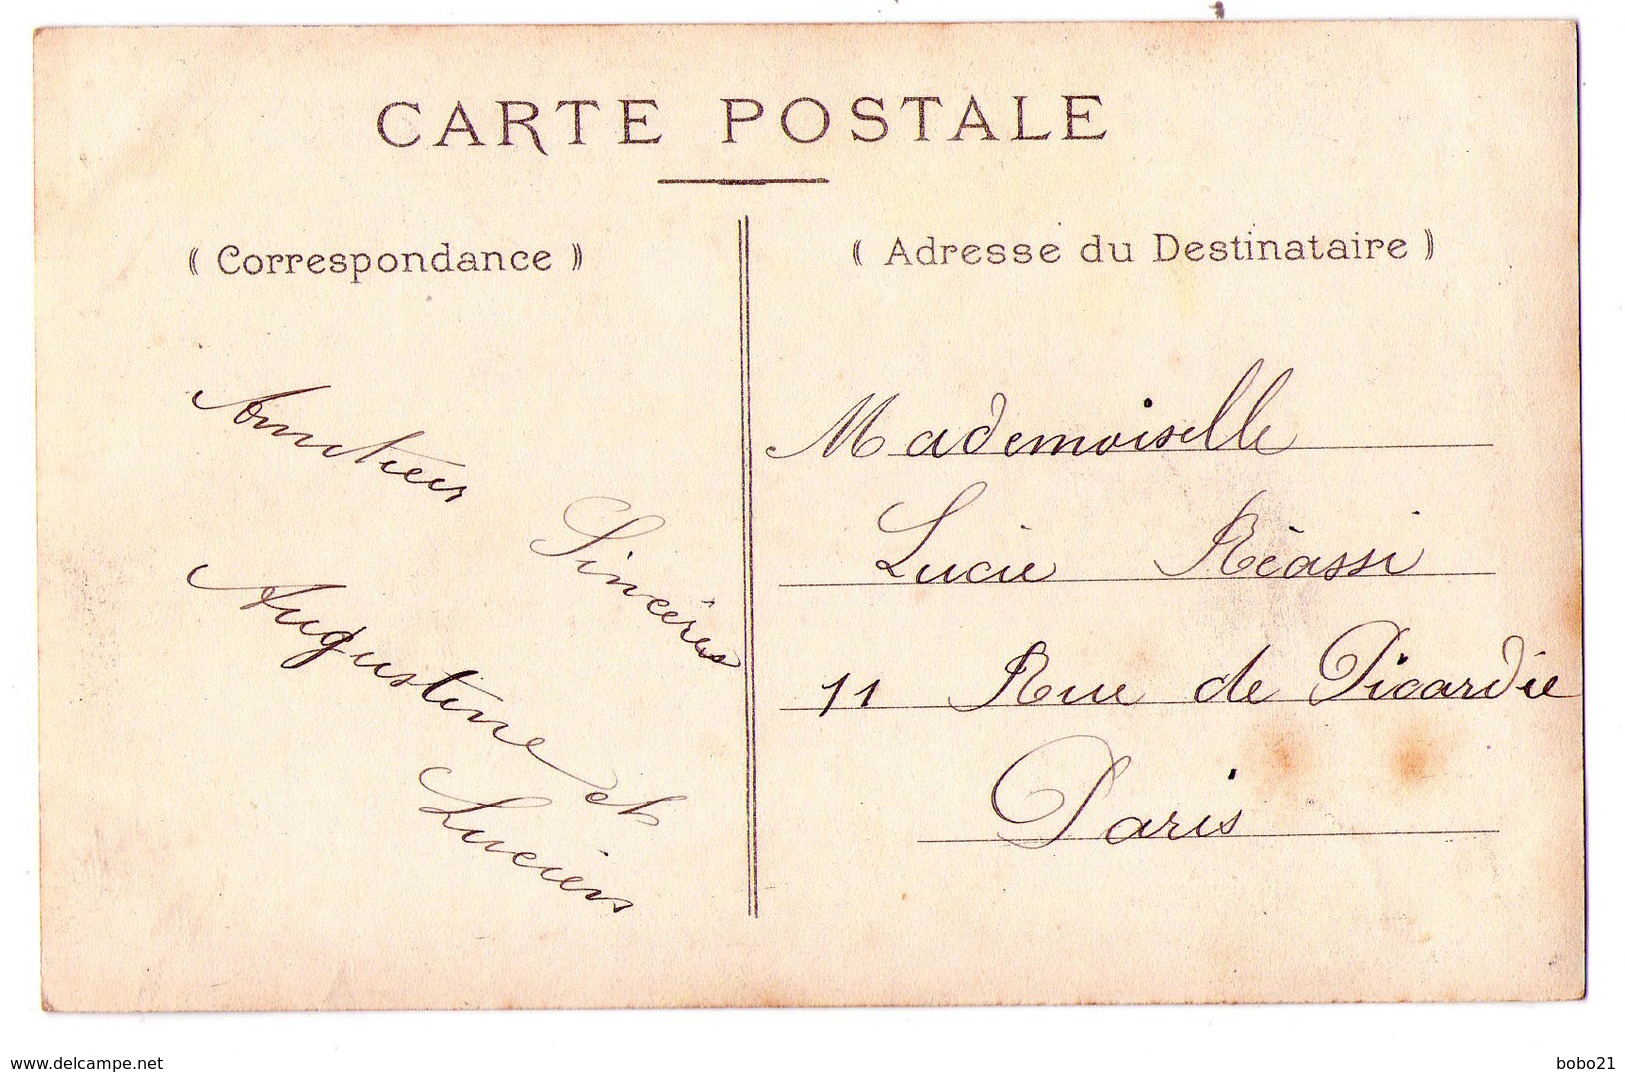 CARTE POSTALE
( Correspondance )
( Adresse du Destinataire )
Amitiés
Sincères
Augustine et
Lucien
Mademoiselle
Lucie Réassi
11 Rue de Picardie
Paris
www.delcampe.net
bobo21